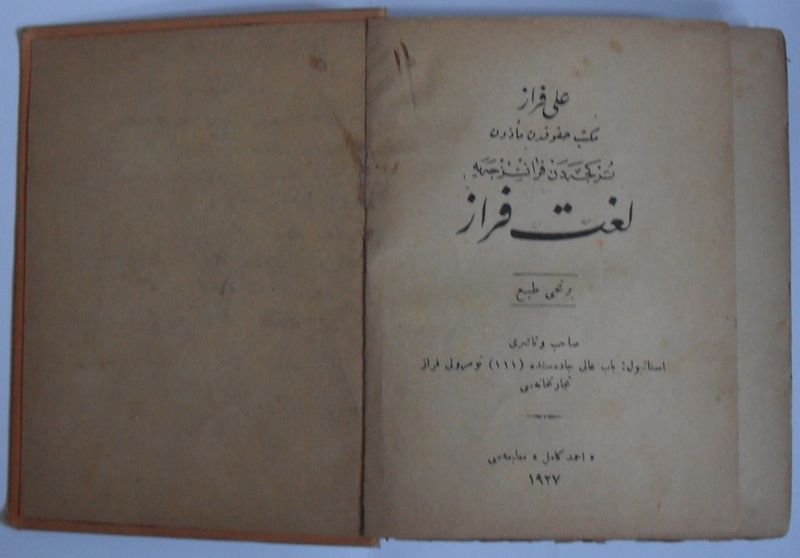 علی فراز
مکتب حقوقدن مأذون
تورکجه‌دن فرانسزجه‌یه
لغت فراز
برنجی طبع
صاحب و ناشری
استانبول: باب عالی جاده‌سنده (١١١) نومرولی فراز
تجارتخانه‌سی
« احمد كامل » مطبعه‌سی
١٩٢٧